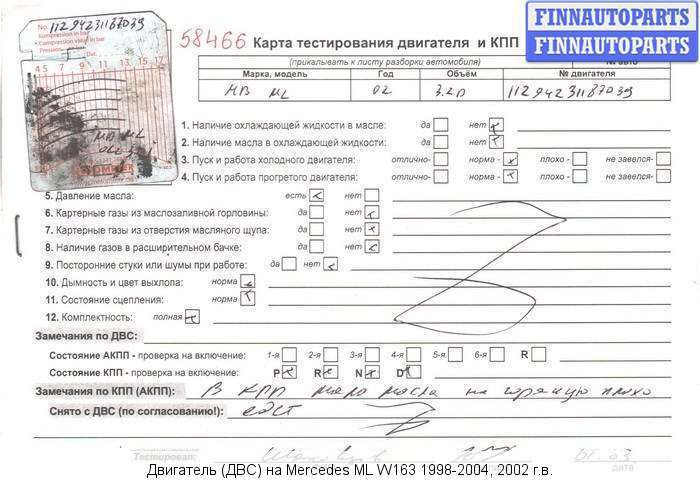 No. 11294231187039
Kompression in bar
Compression in bar
4 5 7 9 11 13 15 17
58466 Карта тестирования двигателя и КПП
FINNAUTOPARTS
FINNAUTOPARTS
(прикалывать к листу разборки автомобиля)
Марка, модель Год Объём № двигателя
МВ ML 02 3.2л 11294231187039
1. Наличие охлаждающей жидкости в масле: да нет
2. Наличие масла в охлаждающей жидкости: да нет
3. Пуск и работа холодного двигателя: отлично- норма - плохо - не завелся-
4. Пуск и работа прогретого двигателя: отлично- норма - плохо - не завелся-
5. Давление масла: есть нет
6. Картерные газы из маслозаливной горловины: да нет
7. Картерные газы из отверстия масляного щупа: да нет
8. Наличие газов в расширительном бачке: да нет
9. Посторонние стуки или шумы при работе: да нет
10. Дымность и цвет выхлопа: норма
11. Состояние сцепления: норма
12. Комплектность: полная
Замечания по ДВС:
Состояние АКПП - проверка на включение: 1-я 2-я 3-я 4-я 5-я 6-я R
Состояние КПП - проверка на включение: P R N D
Замечания по КПП (АКПП): В КПП мало масла на горячую плохо
Снято с ДВС (по согласованию!): едет
Тестировал:
Двигатель (ДВС) на Mercedes ML W163 1998-2004, 2002 г.в.